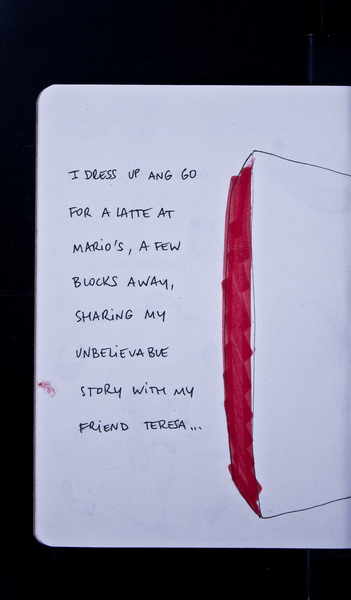 I DRESS UP ANG GO
FOR A LATTE AT
MARIO'S, A FEW
BLOCKS AWAY,
SHARING MY
UNBELIEVABLE
STORY WITH MY
FRIEND TERESA...